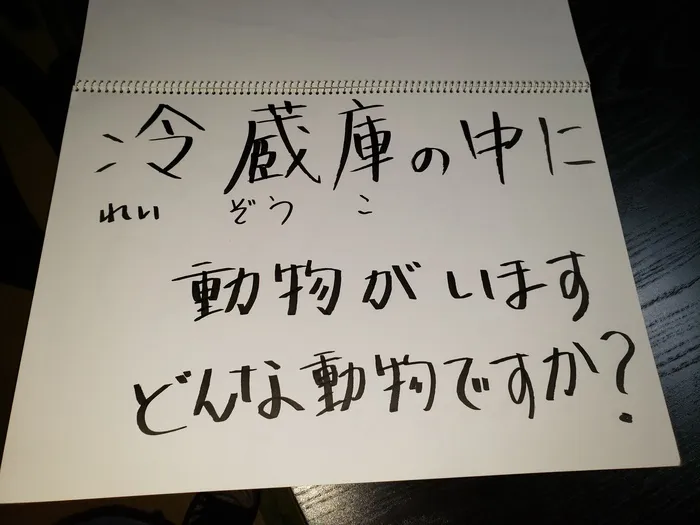 冷蔵庫の中に
れいぞうこ
動物がいます
どんな動物ですか?